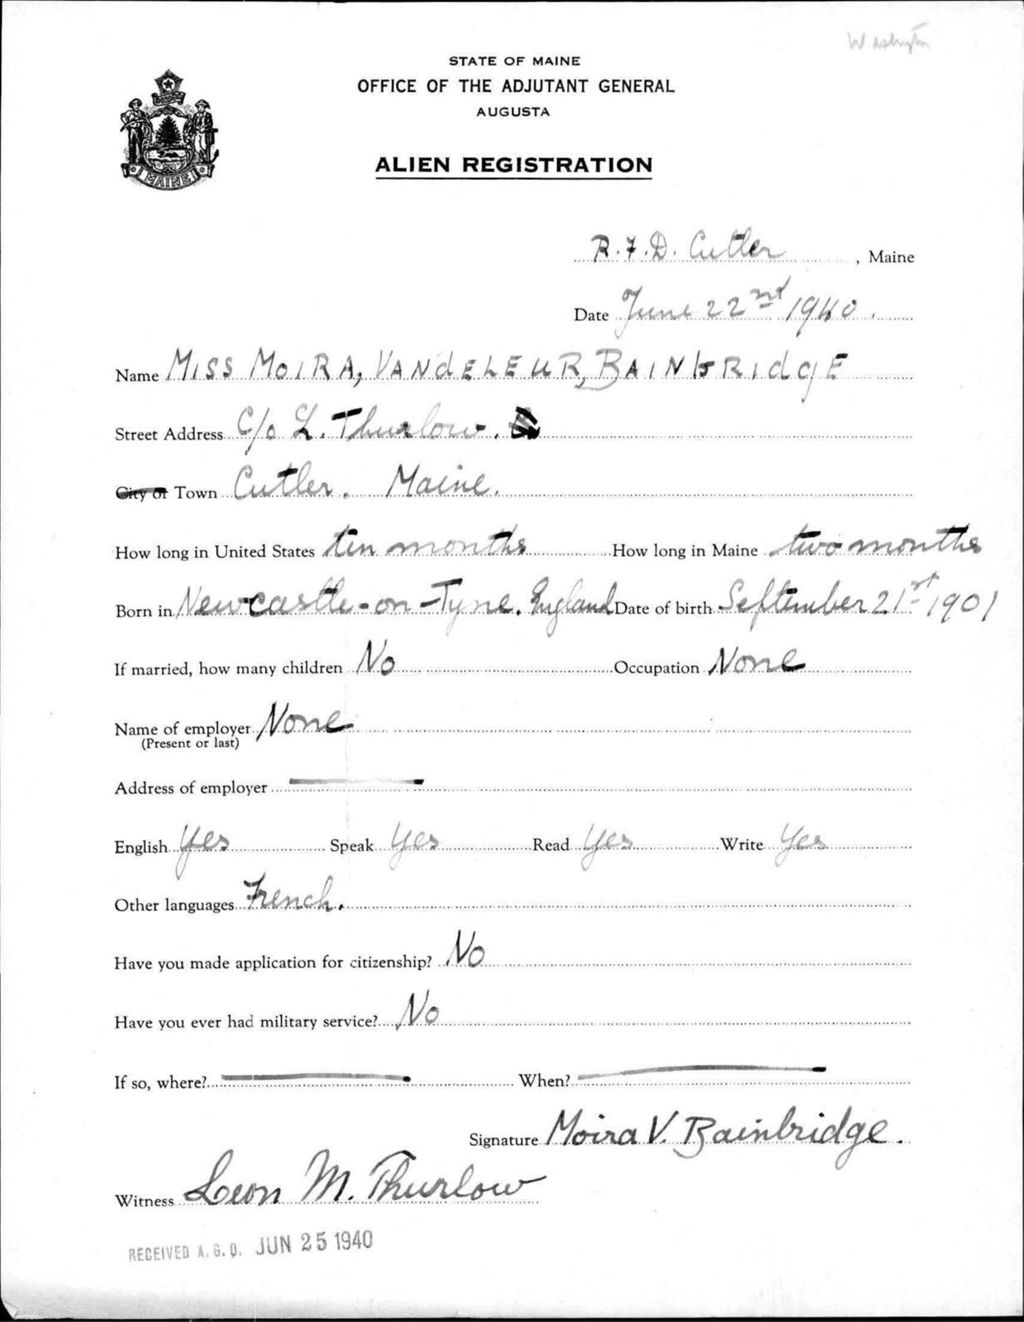 Washington
STATE OF MAINE
OFFICE OF THE ADJUTANT GENERAL
AUGUSTA
ALIEN REGISTRATION
MAINE
R.F.D. Cutler, Maine
Date June 22nd 1940.
Name Miss Moira, Vandeleur, Bainbridge
Street Address C/o L. Thurlow.
City or Town Cutler. Maine.
How long in United States ten months How long in Maine two months
Born in Newcastle-on-Tyne. England Date of birth September 21st 1901
If married, how many children No Occupation None
Name of employer None
(Present or last)
Address of employer
English Yes Speak Yes Read Yes Write Yes
Other languages French.
Have you made application for citizenship? No
Have you ever had military service? No
If so, where? When?
Signature Moira V. Bainbridge.
Witness Leon M. Thurlow
RECEIVED A.G.O. JUN 25 1940